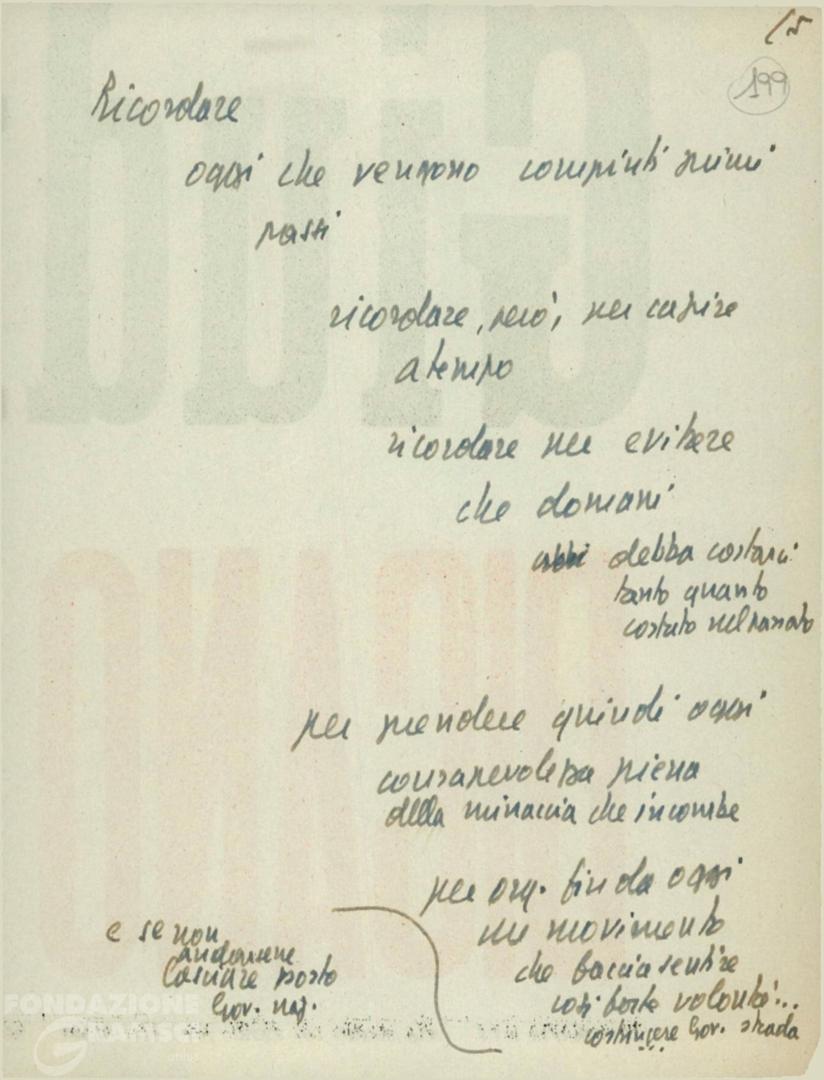 15
199
Ricordare
oggi che vengono compiuti primi
passi
ricordare, però, per capire
a tempo
ricordare per evitare
che domani
abbi debba costarci
tanto quanto
costato nel passato
per prendere quindi oggi
consapevolezza piena
della minaccia che incombe
per org. fin da oggi
un movimento
che faccia sentire
così forte volontà...
costringere Gov. strada
e se non
andarsene
lasciare posto
Gov. naz.
FONDAZIONE
GRAMSCI